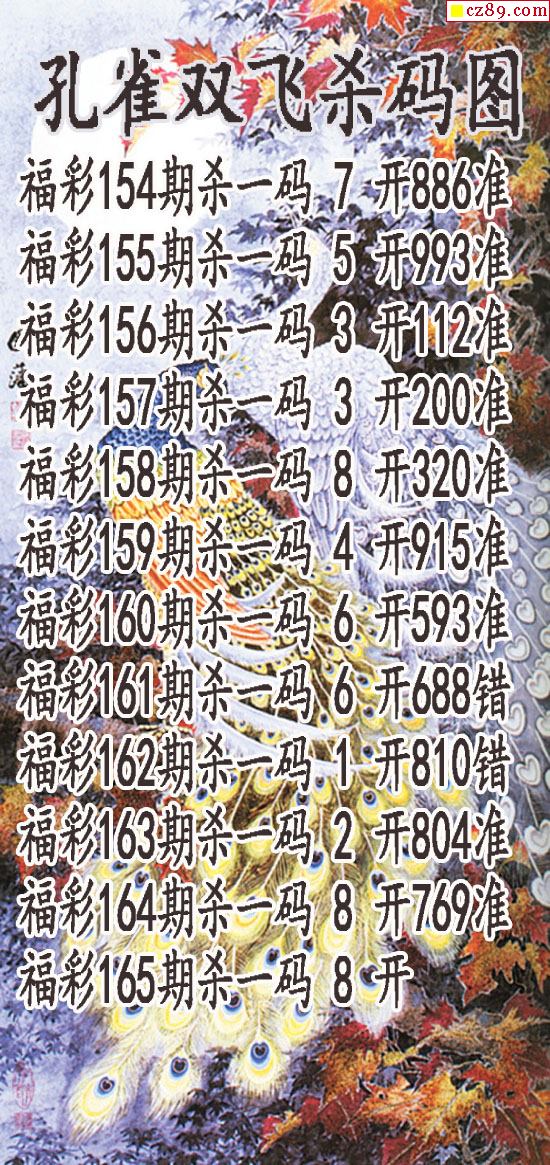 cz89.com
孔雀双飞杀码图
福彩154期杀一码 7 开886准
福彩155期杀一码 5 开993准
福彩156期杀一码 3 开112准
福彩157期杀一码 3 开200准
福彩158期杀一码 8 开320准
福彩159期杀一码 4 开915准
福彩160期杀一码 6 开593准
福彩161期杀一码 6 开688错
福彩162期杀一码 1 开810错
福彩163期杀一码 2 开804准
福彩164期杀一码 8 开769准
福彩165期杀一码 8 开